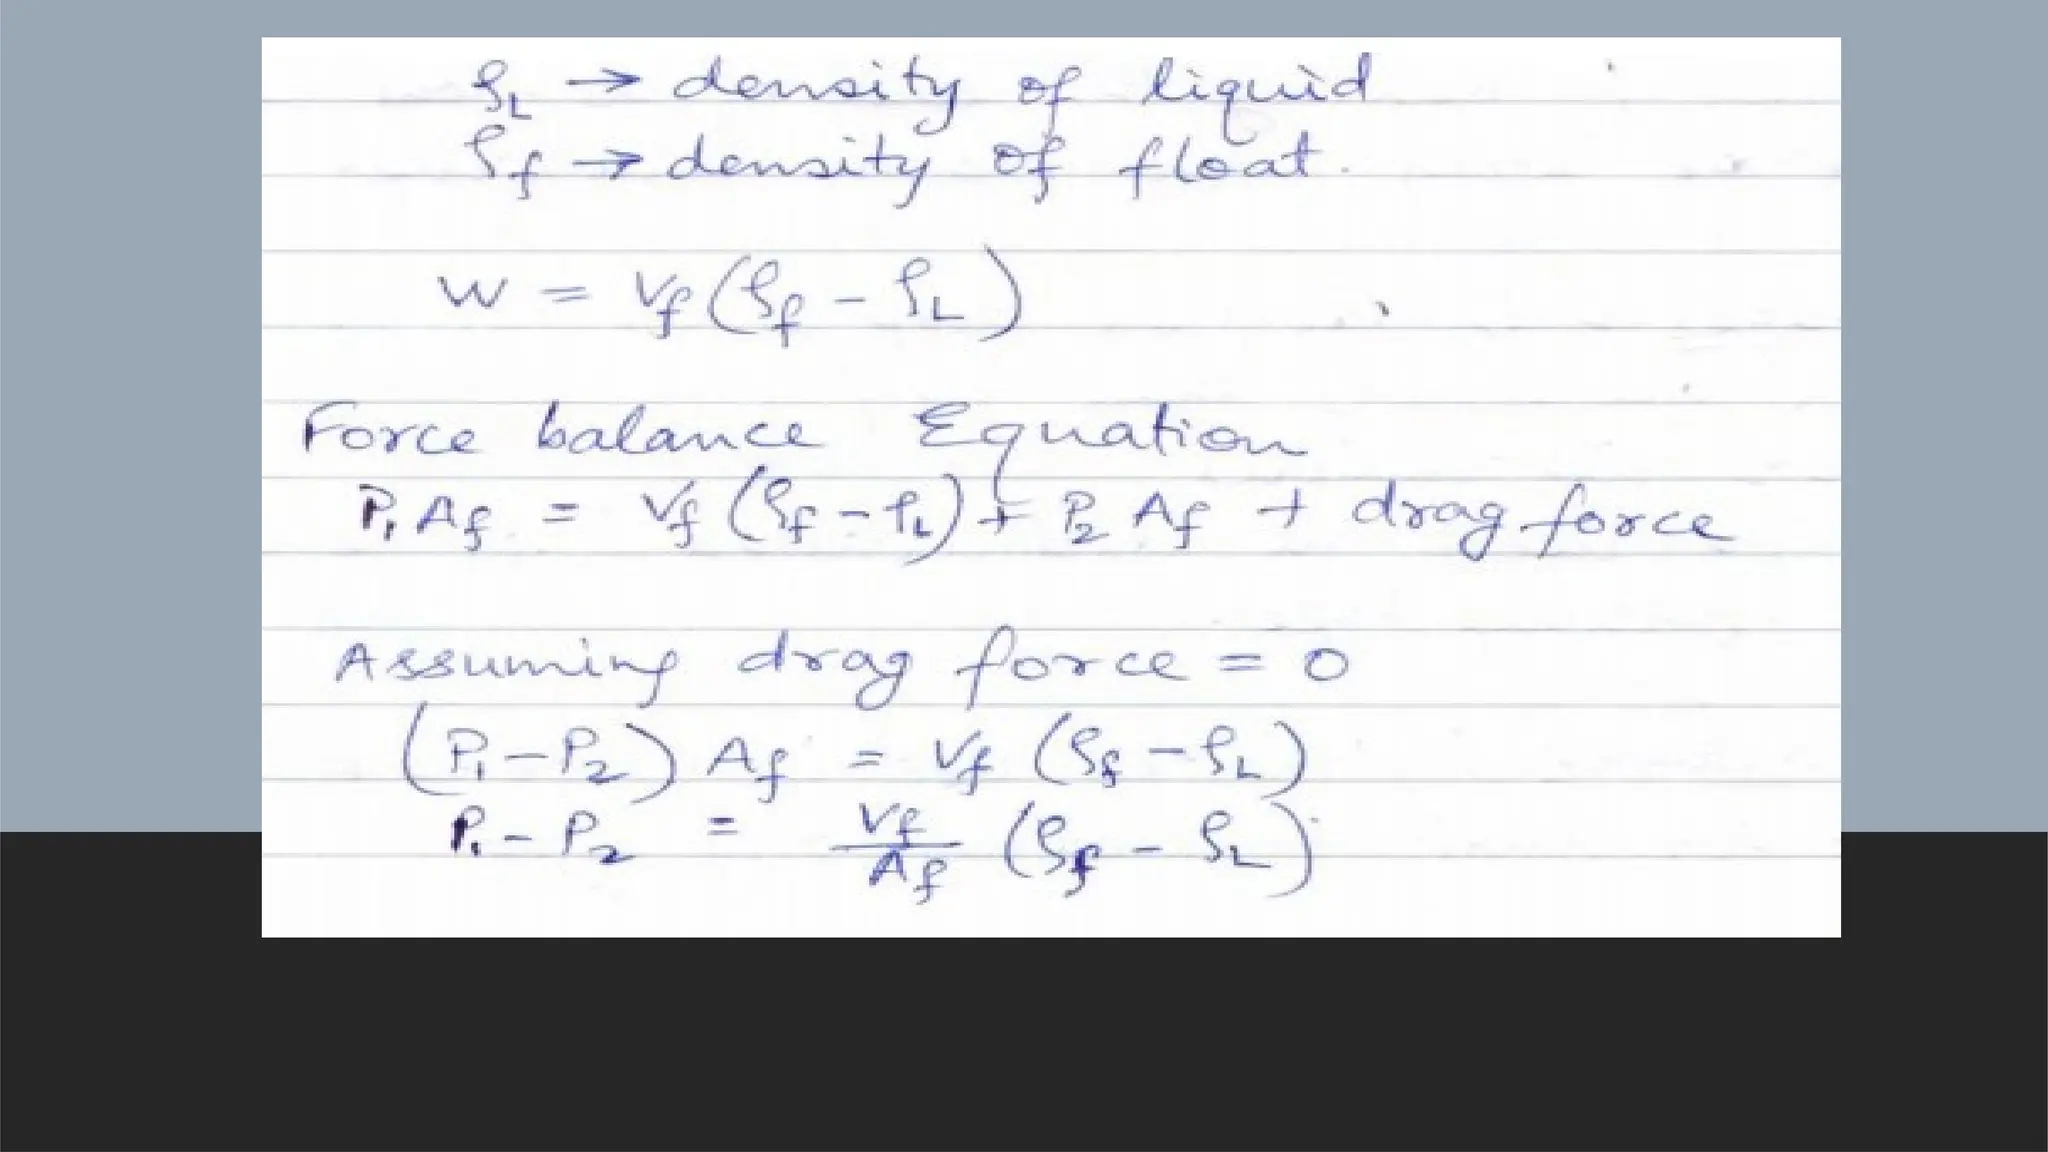 ρL → density of liquid
ρf → density of float.
W = Vf (ρf - ρL)
Force balance Equation
P1 Af = Vf (ρf - ρL) + P2 Af + drag force
Assuming drag force = 0
(P1 - P2) Af = Vf (ρf - ρL)
P1 - P2 = Vf/Af (ρf - ρL)